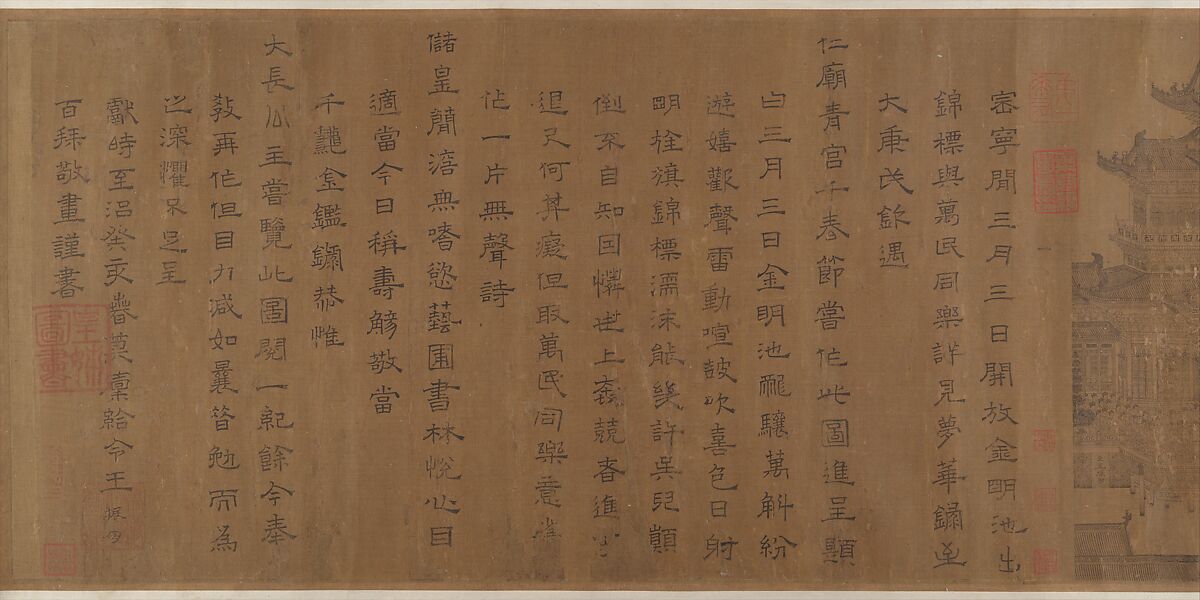 崇寧間三月三日開放金明池出
錦標與萬民同樂詳見夢華錄至
大庚戌欽遇
仁廟青宮千春節嘗作此圖進呈題
曰三月三日金明池龍驤萬斛紛
遊嬉歡聲雷動喧鼓吹喜色日射
明旌旗錦標濡沫能幾許吳兒顛
倒不自知因憐世上奔競者進寸
退尺何其癡但取萬民同樂意為
作一片無聲詩
儲皇簡澹無嗜慾藝圃書林悅心目
適當今日稱壽觴敬當
千龝金鑑錄恭惟
大長公主嘗覽此圖閱一紀餘今奉
教再作但目力減如曩昔勉而為
之深懼不足呈
獻時至治癸亥春莫廩給令王振鵬
百拜敬畫謹書
皇姊圖書